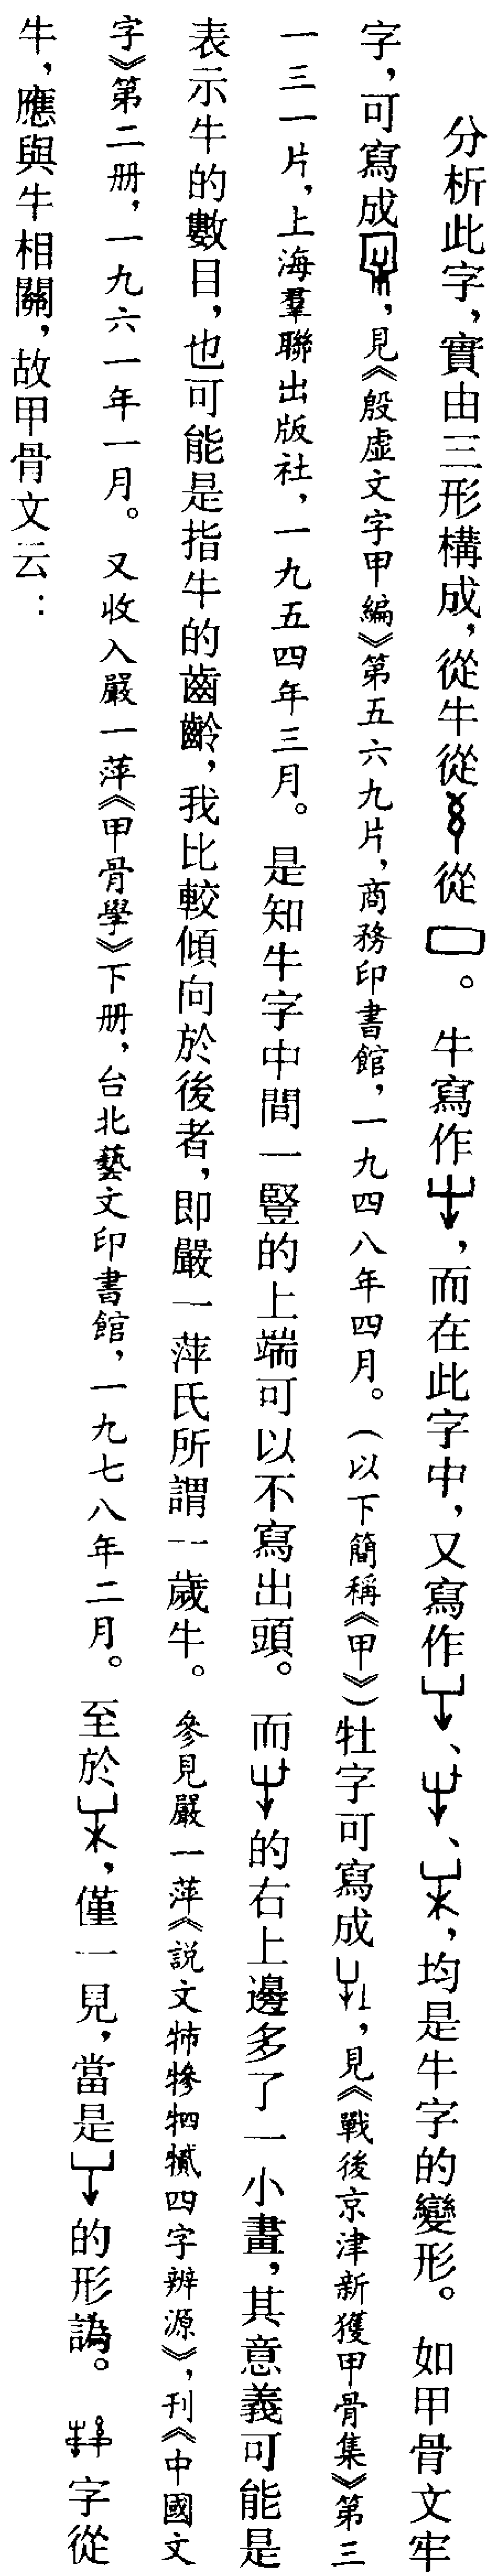 分析此字，實由三形構成，從牛從從。牛寫作，而在此字中，又寫作、、，均是牛字的變形。如甲骨文牢
字，可寫成，見《殷虛文字甲編》第五六九片，商務印書館，一九四八年四月。（以下簡稱《甲》）牡字可寫成，見《戰後京津新獲甲骨集》第三
一三一片，上海羣聯出版社，一九五四年三月。是知牛字中間一豎的上端可以不寫出頭。而的右上邊多了一小畫，其意義可能是
表示牛的數目，也可能是指牛的齒齡，我比較傾向於後者，即嚴一萍氏所謂一歲牛。參見嚴一萍《説文㸬犙牭䊧四字辨源》，刊《中國文
字》第二册，一九六一年一月。又收入嚴一萍《甲骨學》下册，台北藝文印書館，一九七八年二月。至於，僅一見，當是的形譌。字從
牛，應與牛相關，故甲骨文云：